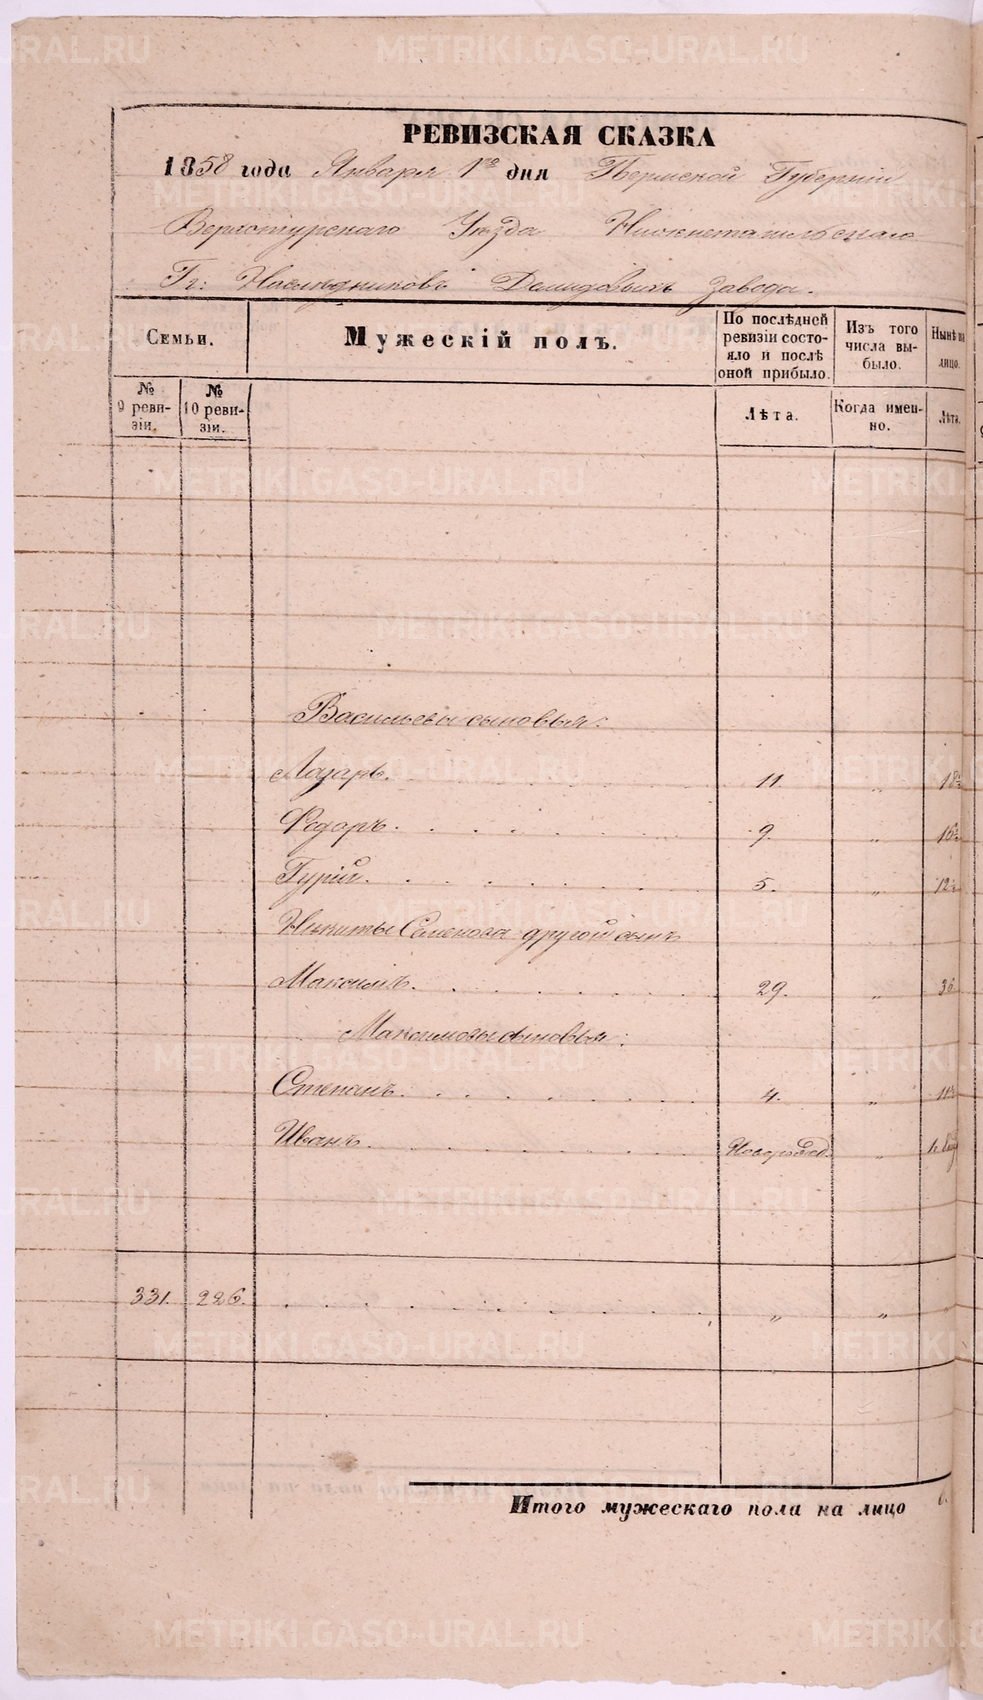 РЕВИЗСКАЯ СКАЗКА
1858 года Января 1го дня Пермской Губерніи
Верхотурскаго Уѣзда Нижнетагильскаго
Гг: Наслѣдниковъ Демидовыхъ завода.
Семьи. Мужескій полъ. По послѣдней ревизіи состояло и послѣ оной прибыло. Изъ того числа выбыло. Нынѣ на лицо.
№ 9 ревизіи. № 10 ревизіи. Лѣта. Когда именно. Лѣта.
Васильевы сыновья:
Лазарь. 11. " 18½
Федоръ. 9. " 16½
Гурій. 5. " 12½
Никиты Семенова другой сынъ
Максимъ. 29. " 36
Максимовы сыновья:
Степанъ. 4. " 11½
Иванъ. Новорожд. "
331. 226. " "
Итого мужескаго пола на лицо 6.
METRIKI.GASO-URAL.RU